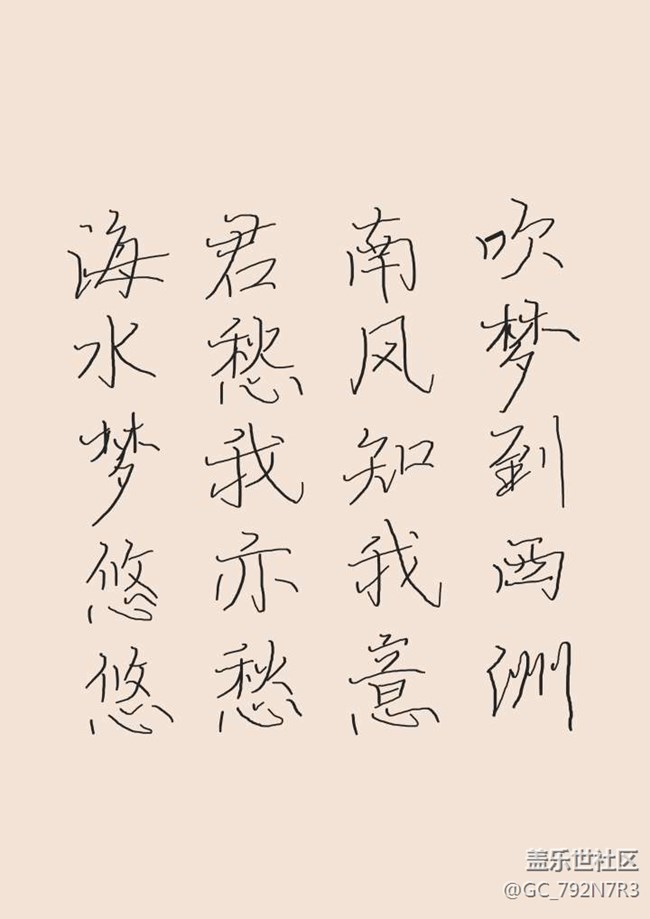 海水梦悠悠
君愁我亦愁
南风知我意
吹梦到西洲
盖乐世社区
@GC_792N7R3